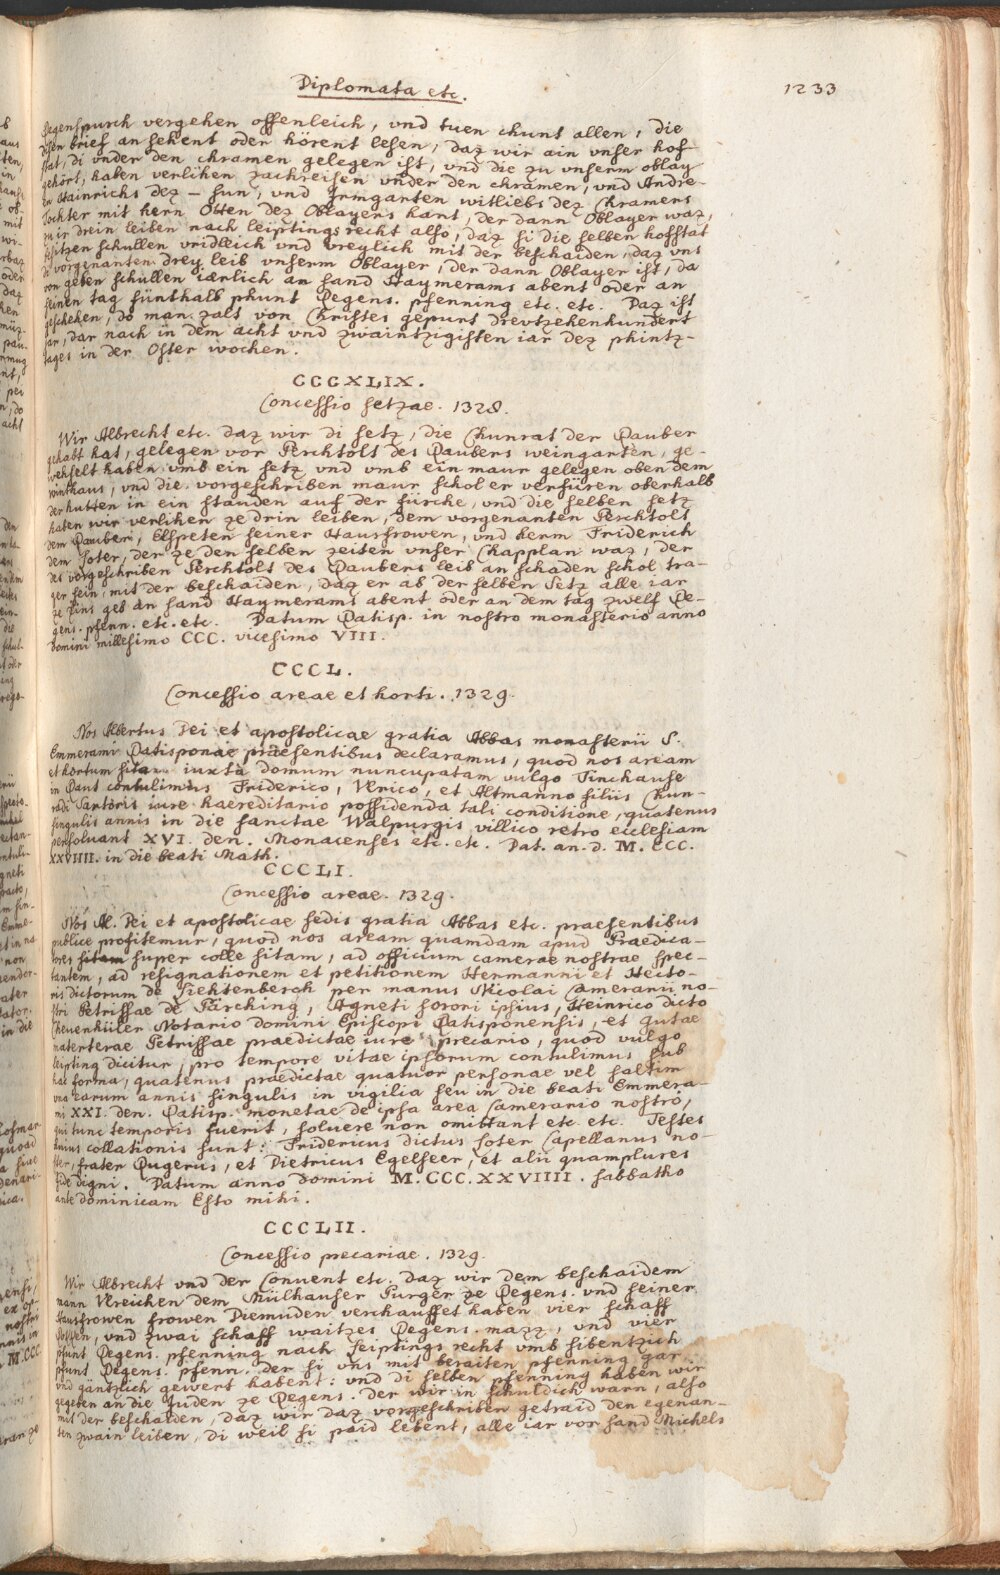 Diplomata etc.
1233
Regenspurch vergehen offenleich, vnd tuen chunt allen, die
disen brief an sehent oder hörent lesen, daz wir ain vnser hof-
stat, di vnder den chramen gelegen ist, vnd die zu vnserm oblay
gehört, haben verlihen zachreisen vnder den chramen, vnd Andre-
en Hainrichs dez — sun, vnd Irmgarten witliebs dez Chramers
Tochter mit hern Otten dez Oblayers hant, der dann Oblayer waz,
zu ir drein leiben nach leiptings recht also, daz si die selben hofstat
besitzen schullen vridleich vnd vreylich mit der beschaiden, daz vns
di vorgenanten drey leib vnserm Oblayer, der dann Oblayer ist, da
von geben schullen iærlich an sand Haymerams abent oder an
seinen tag fünthalb phunt Regens. pfenning etc. etc. Daz ist
geschehen, do man zalt von Christes gepurt Drevtzehenhundert
iar, dar nach in dem acht vnd zwaintzigisten iar dez phintz-
tages in der Oster wochen.
CCCXLIX.
Concessio setzae. 1328.
Wir Albrecht etc. daz wir di setz, die Chunrat der Dauber
gehabt hat, gelegen vor Perchtolt des Daubers weingarten, ge-
wehselt haben vmb ein setz vnd vmb ein maur gelegen oben dem
winthaus, vnd die vorgeschriben maur schol er verfüren oberhalb
der hutten in ein standen auf der fürche, vnd die selben setz
haben wir verlihen ze drin leiben, dem vorgenanten Perchtolt
dem Dauber, Elspeten seiner Hausfrowen, vnd herm Friderich
dem Soter, der ze den selben zeiten vnser Chapplan waz, der
des vorgeschriben Perchtolt des Daubers leib an schaden schol tra-
ger sein, mit der beschaiden, daz er ab der selben Setz alle iar
ze zins geb an sand Haymerams abent oder an dem tag zwelf Re-
gens. pfenn. etc. etc. Datum Ratisp. in nostro monasterio anno
Domini millesimo CCC. vicesimo VIII.
CCCL.
Concessio areae et horti. 1329.
Nos Albertus Dei et apostolicae gratia Abbas monasterii S.
Emmerami Ratisponae praesentibus declaramus, quod nos aream
et hortum sitam iuxta domum nuncupatam vulgo Tinchause
in Daut contulimus Friderico, Vlrico, et Altmanno filiis Chun-
radi Sartoris iure haereditario possidenda tali conditione, quatenus
singulis annis in die sanctae Walpurgis villico retro ecclesiam
persoluant XVI. den. Monacenses etc. etc. Dat. an. d. M. CCC.
XXVIIII. in die beati Math.
CCCLI.
Concessio areae. 1329.
Nos Al. Dei et apostolicae sedis gratia Abbas etc. praesentibus
publice profitemur, quod nos aream quamdam apud Praedica-
tores sitam super colle sitam, ad officium camerae nostrae spec-
tantem, ad resignationem et petitionem Hermanni et Hecto-
ris dictorum de Liehtenberch per manus Nicolai Camerarii no-
stri Petrissae de Pärching, Agneti sorori ipsius, Heinrico dicto
Chevenhüler Notario domini Episcopi Ratisponensis, et Gutae
materterae Petrissae praedictae iure precario, quod vulgo
leipting dicitur, pro tempore vitae ipsorum contulimus sub
hac forma, quatenus praedictae quatuor personae vel saltim
vna earum annis singulis in vigilia seu in die beati Emmera-
mi XXI. den. Ratisp. monetae de ipsa area Camerario nostro,
qui tunc temporis fuerit, soluere non omittant etc. etc. Testes
huius collationis sunt: Fridericus dictus Soter Capellanus no-
ster, frater Rugerus, et Dietricus Egelseer, et alii quamplures
fide digni. Datum anno Domini M. CCC. XXVIIII. sabbatho
ante dominicam Esto mihi.
CCCLII.
Concessio precariae. 1329.
Wir Albrecht vnd der Convent etc. daz wir dem beschaidem
mann Vlreichen dem Mülhauser Purger ze Regens. vnd seiner
Hausfrowen frowen Diemuden verchauffet haben vier schaff
Rokken, vnd zwai schaff waitzes Regens. mazz, vnd vier
pfunt Regens. pfenning nach Leiptings recht vmb sibentzich
pfunt Regens. pfenn. der si vns mit beraiten pfenning gar
vnd gäntzlich gewert habent: vnd di selben pfenning haben wir
gegeben an die Juden ze Regens. Der wir in schuldich warn, also
mit der beschaiden, daz wir daz vorgeschriben getraid den egenan-
ten zwain leiben, di weil si paid lebent, alle iar vor sand Michels